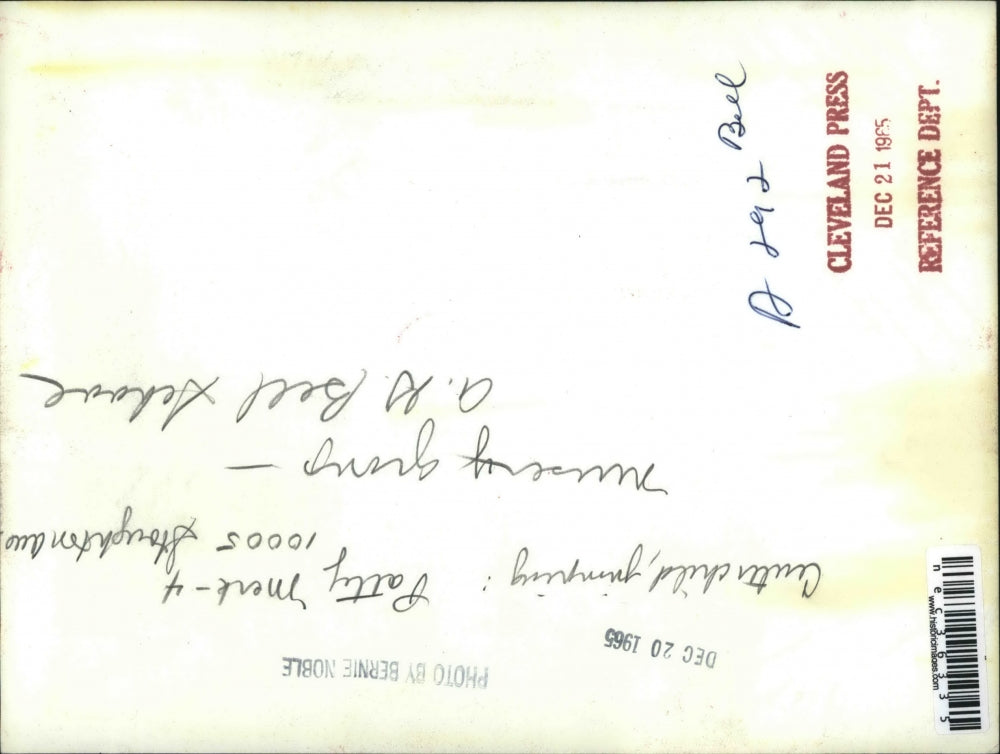 DEC 20 1965
PHOTO BY BERNIE NOBLE
Center child, jumping: Patty Merk-4
10005 Stoughton ave,
Nursery group —
A.G. Bell School
A 292 Bell
CLEVELAND PRESS
DEC 21 1965
REFERENCE DEPT.
nec36335
www.historicimages.com